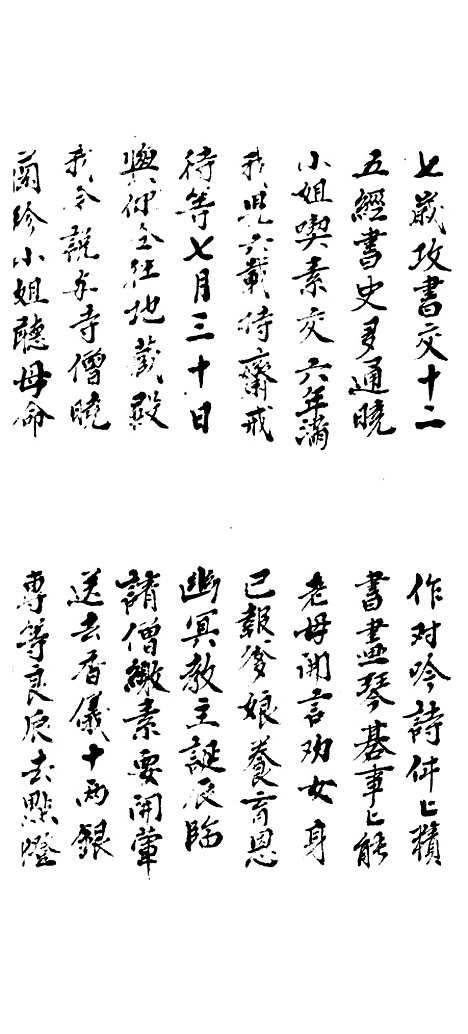 七歲攻書交十二
作对吟詩件匕積
五經書史多通曉
書畫琴碁事匕能
小姐喫素交六年滿
老母開言劝女身
我兒六載持齋戒
已報爹娘養育恩
待等七月三十日
幽冥教主誕辰臨
與伊仝往地藏殿
請僧繳素要開葷
我今說寺僧曉
送去香儀十兩銀
蘭珍小姐聽母命
專等良辰去點燈